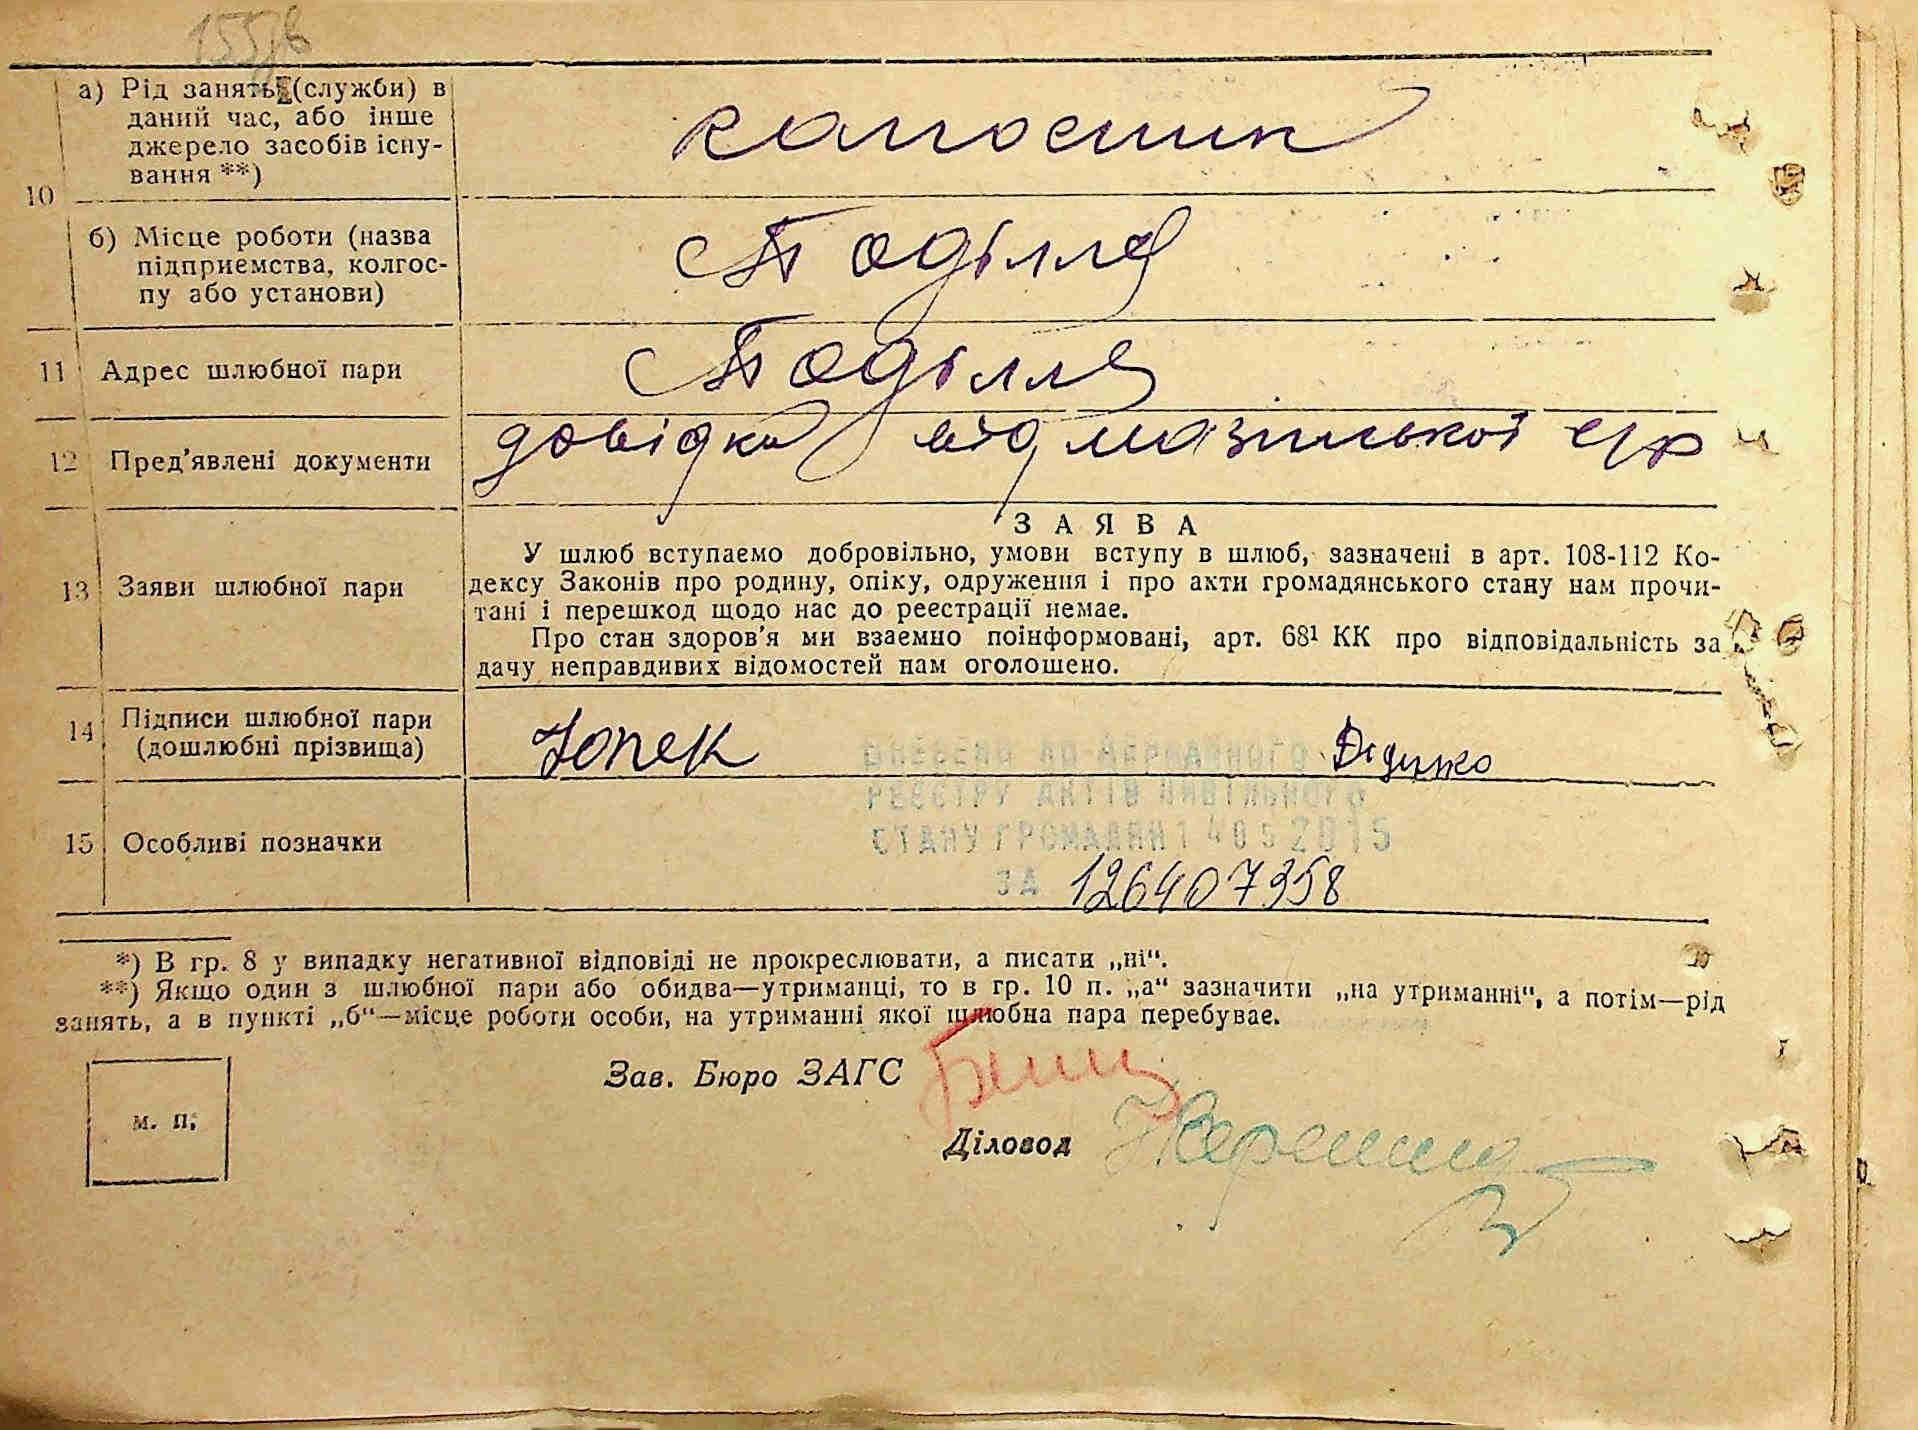 155
а) Рід занять (служби) в
даний час, або інше
джерело засобів існу-
вання **)
10
б) Місце роботи (назва
підприємства, колгос-
пу або установи)
Поділля
11 Адрес шлюбної пари
Поділля
12 Пред'явлені документи
довідка від мазинської с/р
З А Я В А
13 Заяви шлюбної пари
У шлюб вступаємо добровільно, умови вступу в шлюб, зазначені в арт. 108-112 Ко-
дексу Законів про родину, опіку, одруження і про акти громадянського стану нам прочи-
тані і перешкод щодо нас до реєстрації немає.
Про стан здоров'я ми взаємно поінформовані, арт. 68¹ КК про відповідальність за
дачу неправдивих відомостей нам оголошено.
14 Підписи шлюбної пари
(дошлюбні прізвища)
Юпек
ВНЕСЕНО ДО ДЕРЖАВНОГО
РЕЄСТРУ АКТІВ ЦИВІЛЬНОГО
15 Особливі позначки
СТАНУ ГРОМАДЯН 14 05 2015
ЗА 126407358
*) В гр. 8 у випадку негативної відповіді не прокреслювати, а писати „ні“.
**) Якщо один з шлюбної пари або обидва—утриманці, то в гр. 10 п. „а“ зазначити „на утриманні“, а потім—рід
занять, а в пункті „б“—місце роботи особи, на утриманні якої шлюбна пара перебуває.
Зав. Бюро ЗАГС
м. п.
Діловод